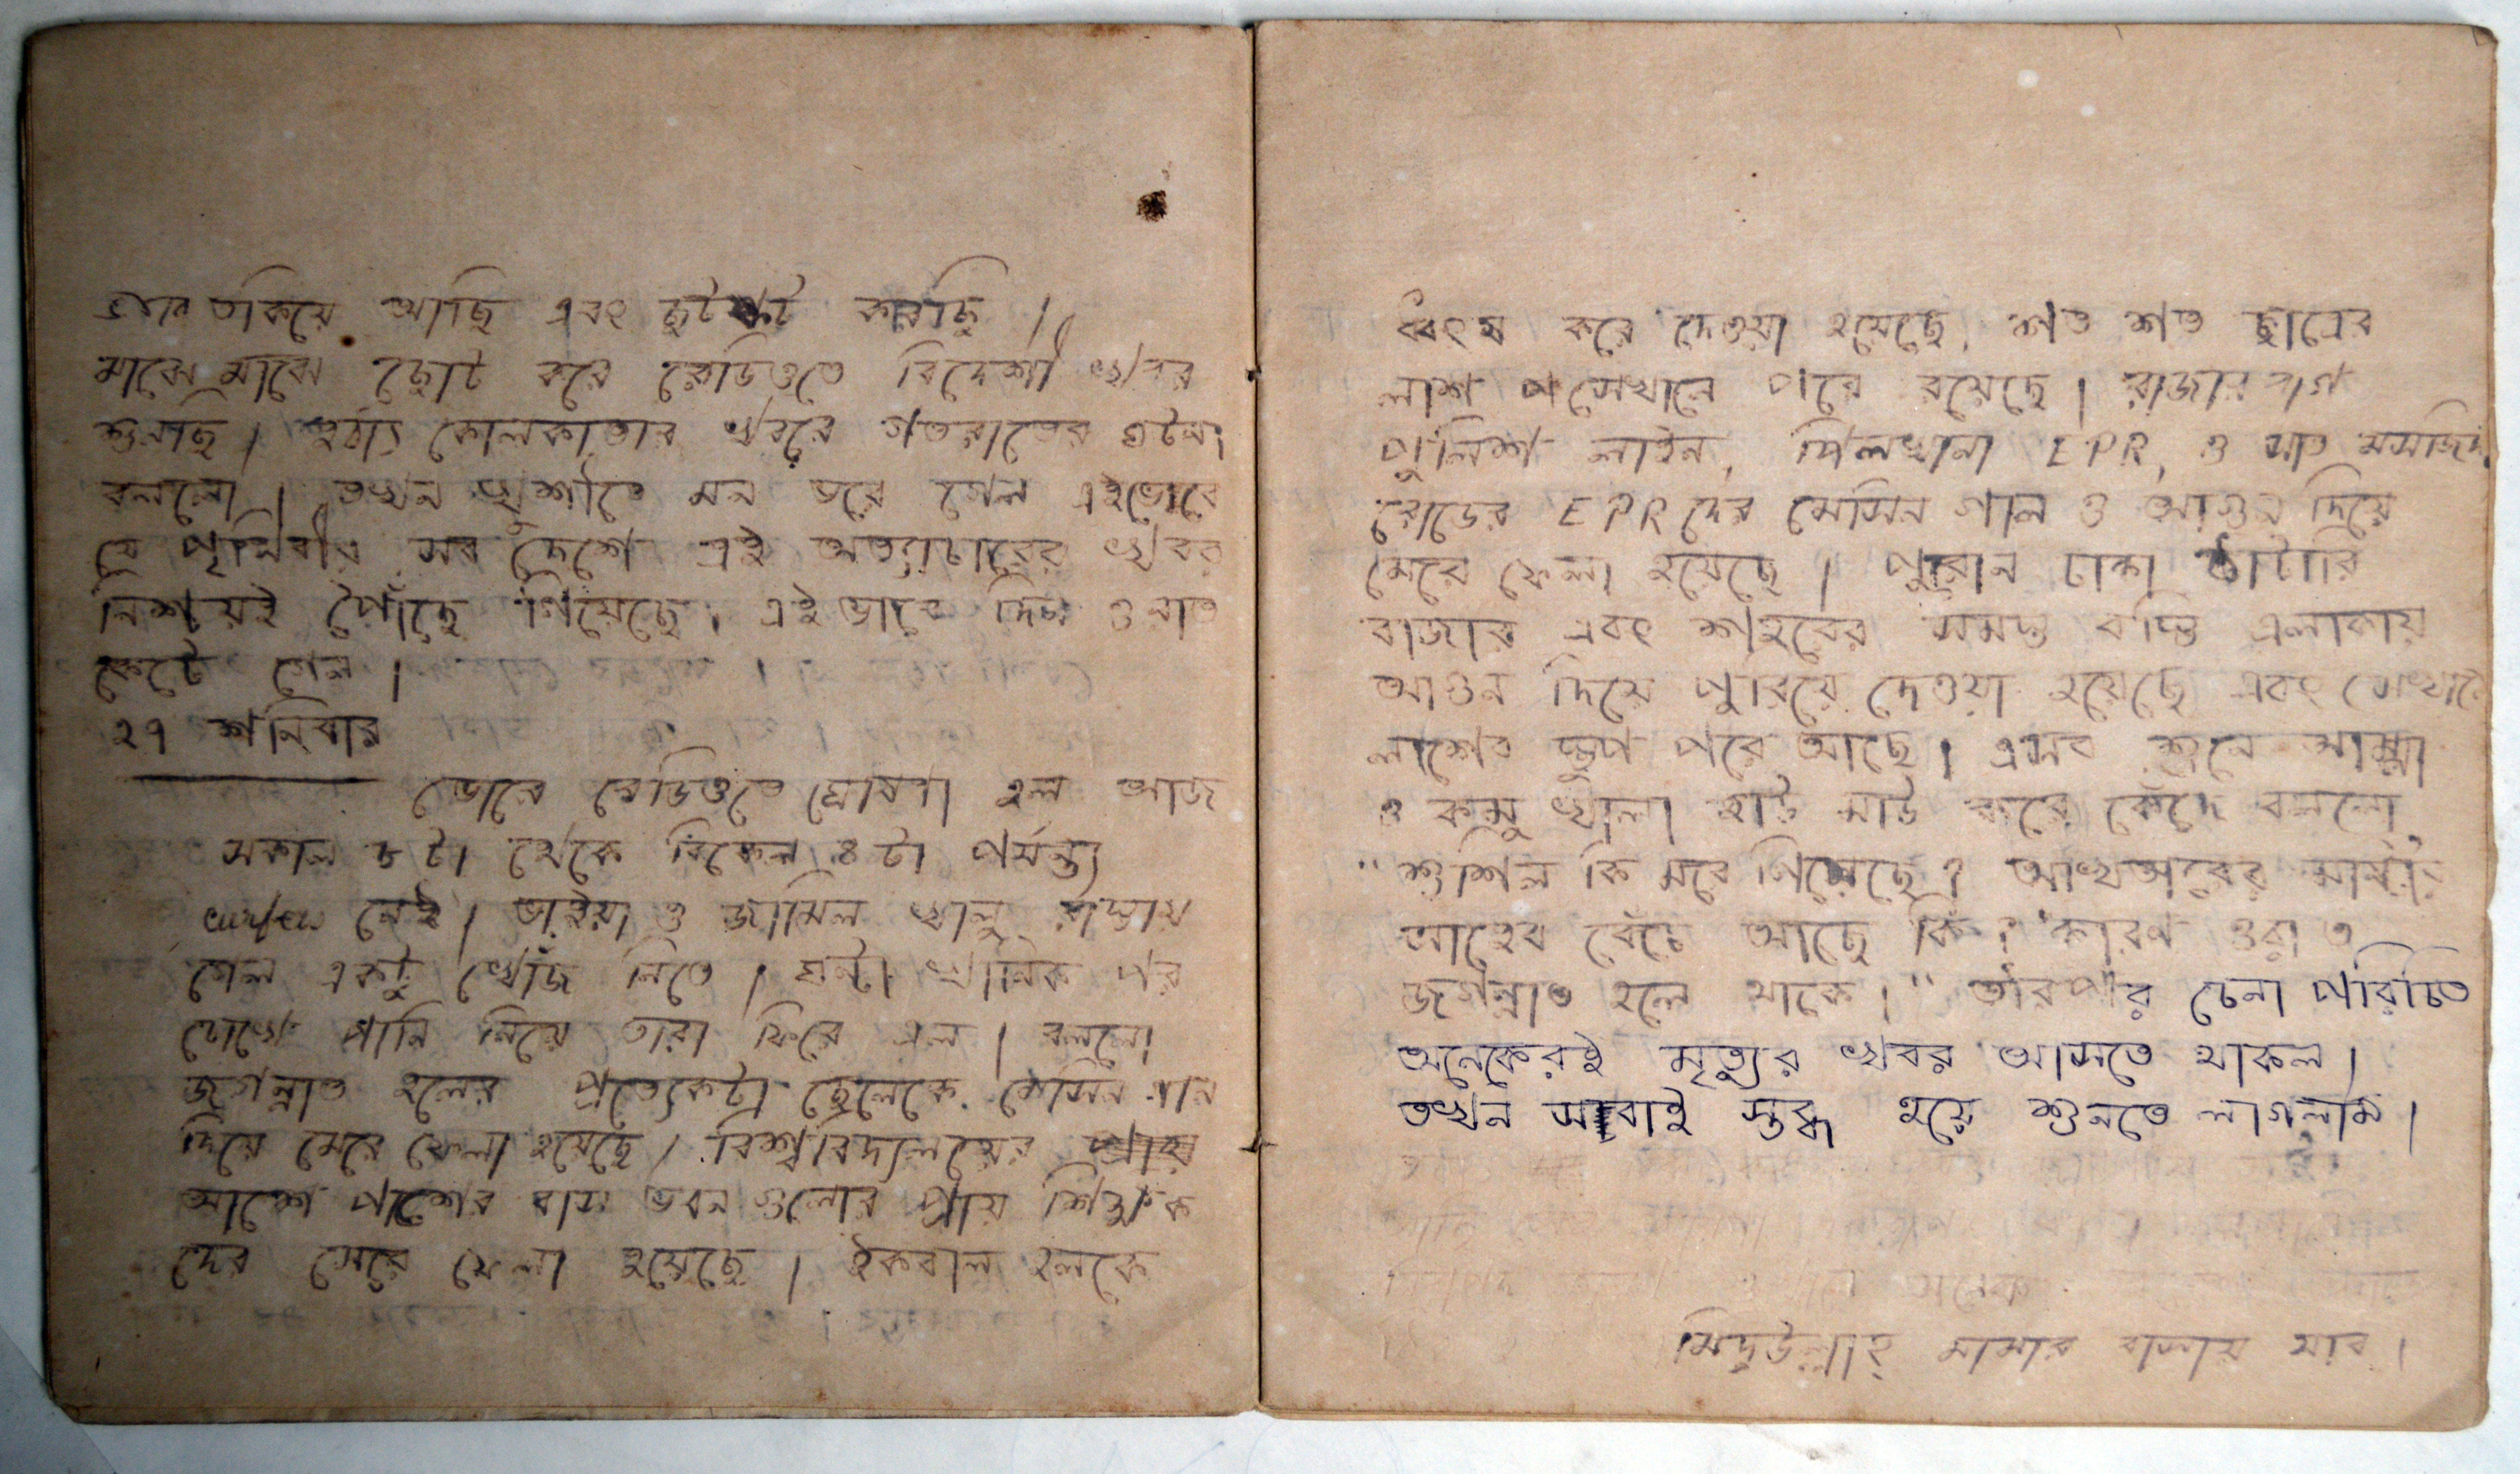 তাকিয়ে আছি এবং ছটফট করছি।
মাঝে মাঝে ছোট করে রেডিওতে বিদেশী খবর
শুনছি। হঠাৎ কোলকাতার খবরে গতরাতের ঘটনা
বললো। তখন খুশীতে মন ভরে গেল এইভেবে
যে পৃথিবীর সব দেশে এই অত্যাচারের খবর
নিশ্চয়ই পৌঁছে গিয়েছে। এইভাবে দিন ও রাত
কেটে গেল।
২৭ শনিবার
ভোরে রেডিওতে ঘোষণা হল আজ
সকাল ৮টা থেকে বিকেল ৪টা পর্যন্ত্য
curfew নেই। ভাইয়া ও জামিল খালু রাস্তায়
গেল একটু খোঁজ নিতে। ঘন্টা খানিক পর
চোখে পানি নিয়ে তারা ফিরে এল। বললো
জগন্নাত হলের প্রত্যেকটা ছেলেকে মেসিন গান
দিয়ে মেরে ফেলা হয়েছে। বিশ্ববিদ্যলয়ের
আশে পাশের বাস ভবন গুলোর প্রায় শিক্ষক
দের মেরে ফেলা হয়েছে। ইকবাল হলকে
ধ্বংস করে দেওয়া হয়েছে, শত শত ছাত্রের
লাশ সেখানে পরে রয়েছে। রাজার বাগ
পুলিশ লাইন, পিলখানা EPR, ও সাত মসজিদ
রোডের EPR দের মেসিন গান ও আগুন দিয়ে
মেরে ফেলা হয়েছে। পুরোন ঢাকা ঠাটারি
বাজার এবং শহরের সমস্ত বস্তি এলাকায়
আগুন দিয়ে পুরিয়ে দেওয়া হয়েছে এবং সেখানে
লাশের স্তুপ পরে আছে। এসব শুনে আম্মা
ও কমু খালা হাউ মাউ করে কেঁদে বললো
"শুশিল কি মরে গিয়েছে? আখতারের
বেঁচে আছে কি? কারণ ওরা ত
জগন্নাত হলে থাকে।" তারপর চেনা পরিচিত
অনেকেরই মৃত্যুর খবর আসতে থাকল।
তখন সবাই স্তব্ধ হয়ে শুনতে লাগলাম।
মামার বাসায় যাব।